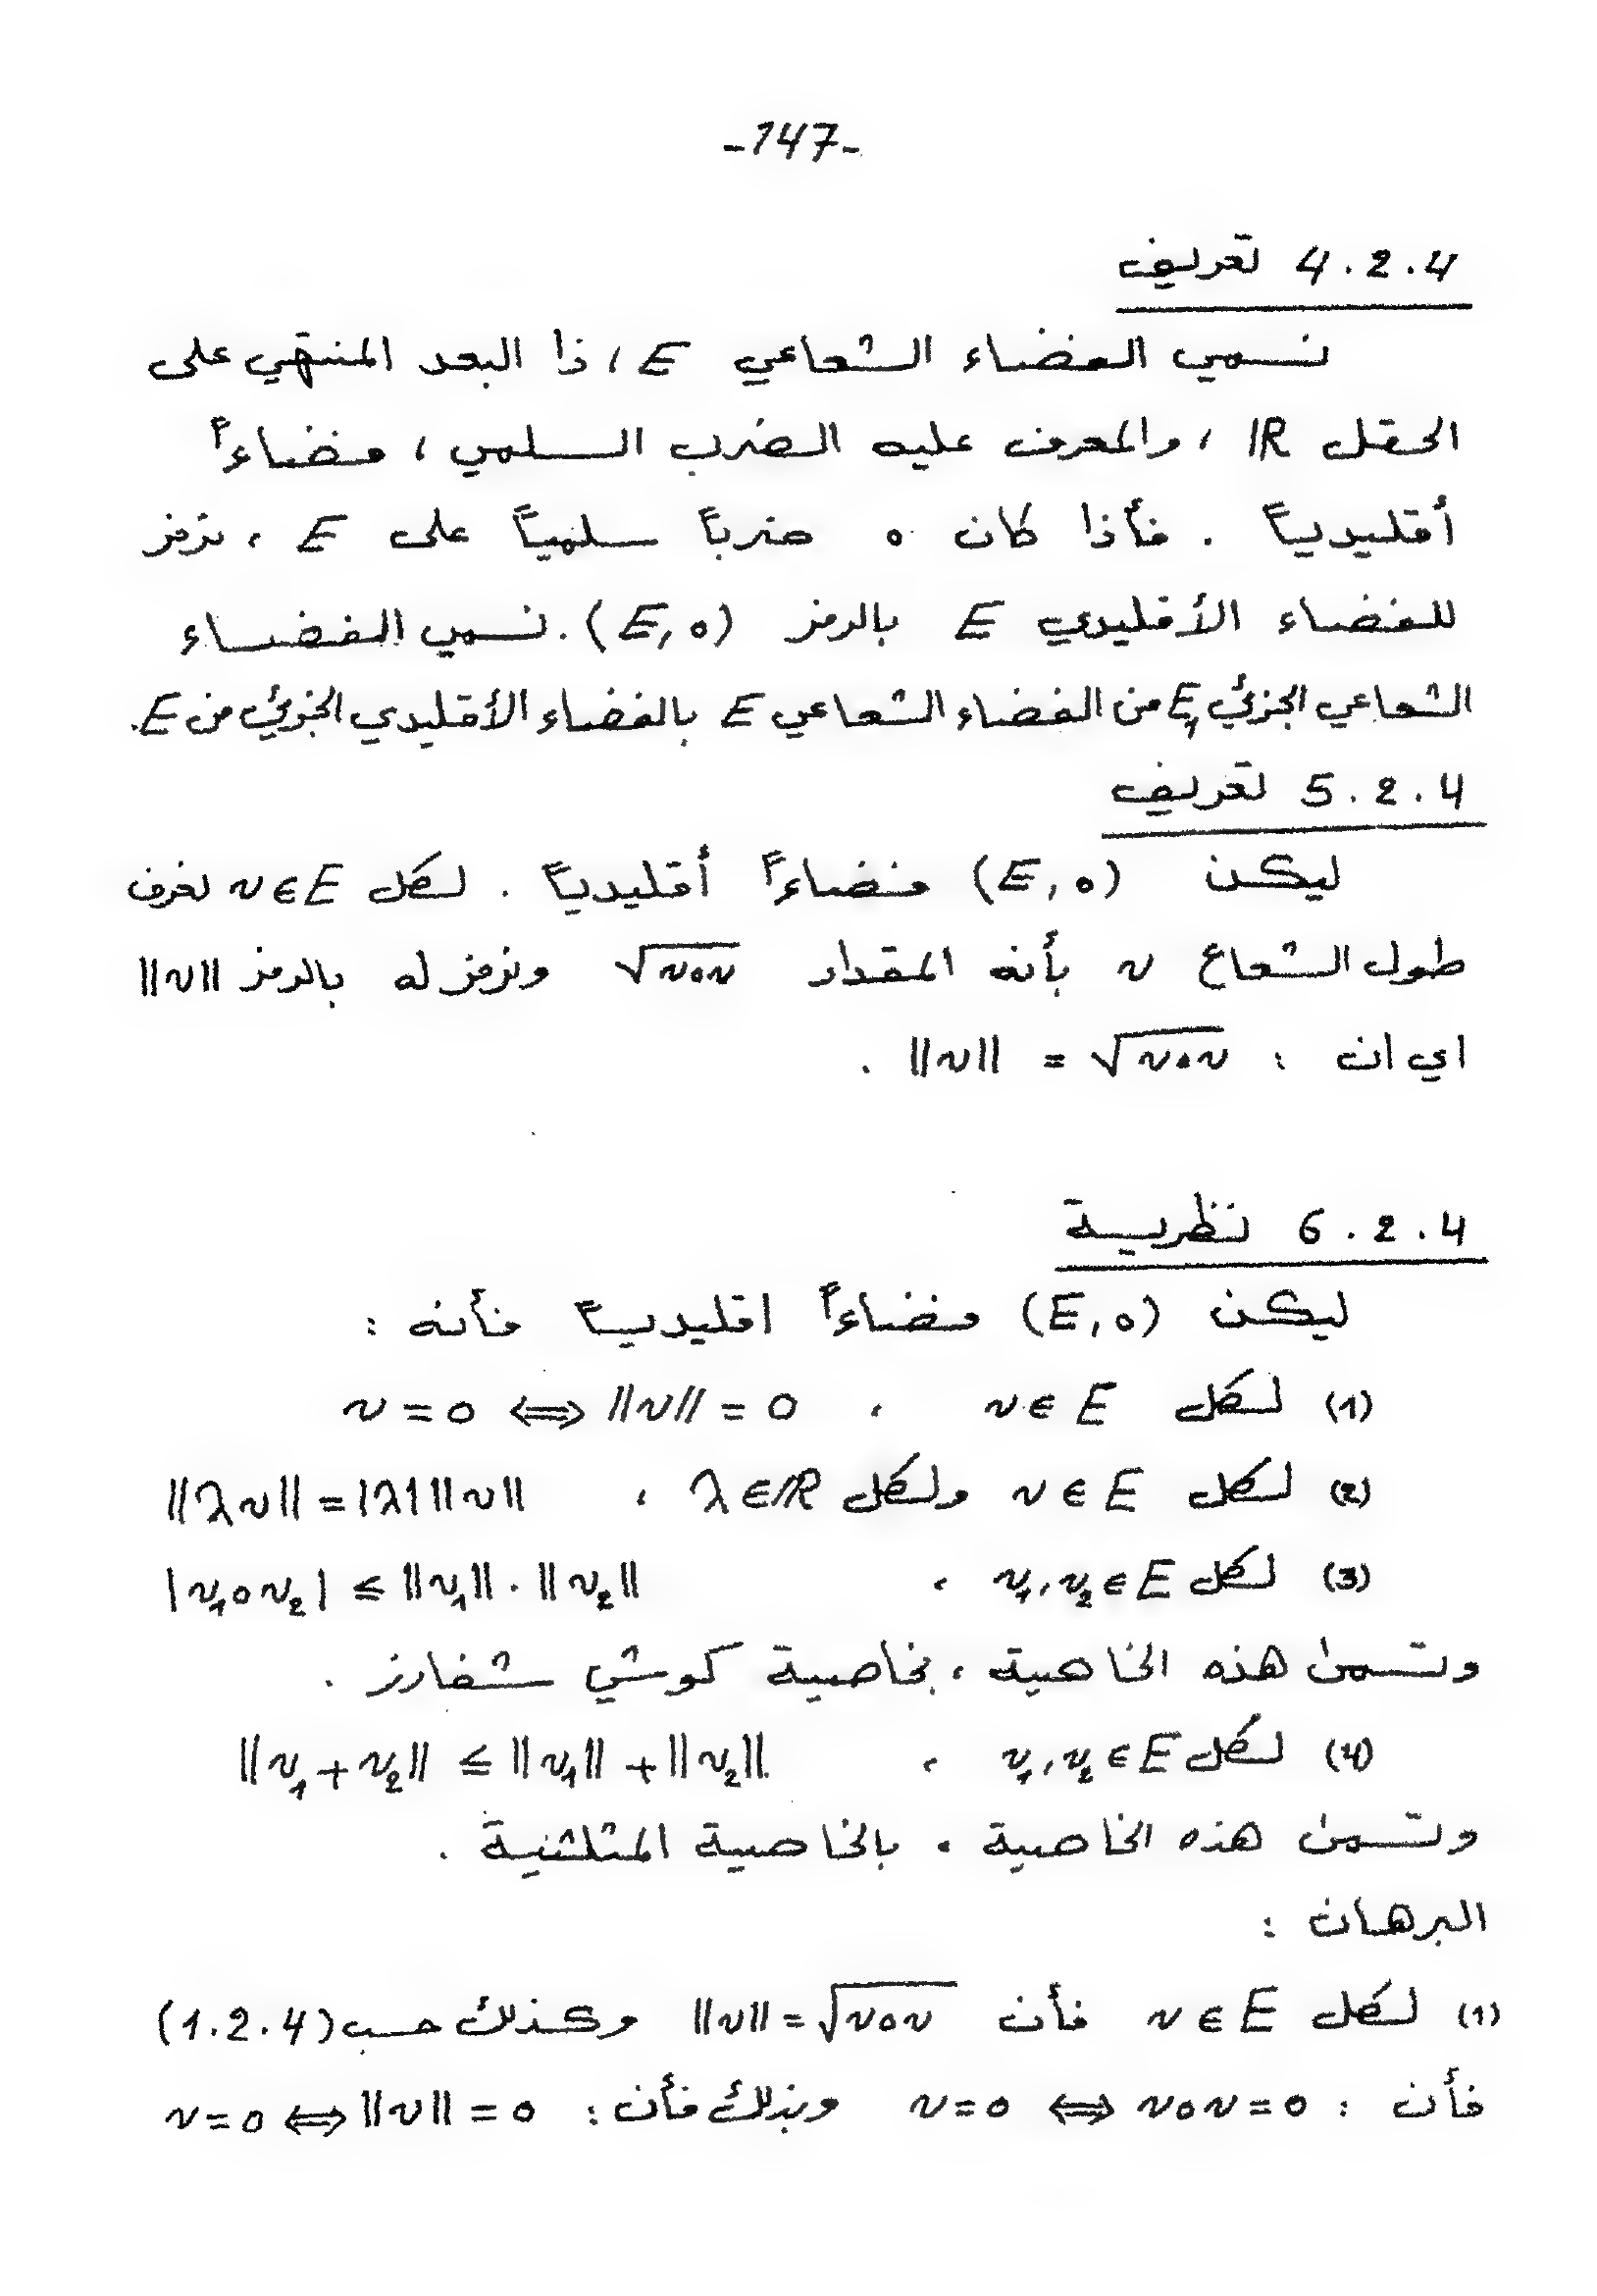 -147-
4.2.4 تعريف
نسمي الفضاء الشعاعي E ، ذا البعد المنتهي على
الحقل IR ، والمعرف عليه الضرب السلمي ، فضاءاً
أقليدياً . فأذا كان o ضرباً سلمياً على E ، نرمز
للفضاء الأقليدي E بالرمز (E,o) . نسمي الفضاء
الشعاعي الجزئي E₁ من الفضاء الشعاعي E بالفضاء الأقليدي الجزئي من E.
5.2.4 تعريف
ليكن (E,o) فضاءاً أقليدياً . لكل v∈E نعرف
طول الشعاع v بأنه المقدار √(vov) ونرمز له بالرمز ||v||
اي ان : ||v|| = √(vov) .
6.2.4 نظرية
ليكن (E,o) فضاءاً اقليدياً فأنه :
(1) لكل v∈E ، v=o ⟺ ||v||=O
(2) لكل v∈E ولكل λ∈IR ، ||λv||=|λ|||v||
(3) لكل v₁,v₂∈E ، |v₁ov₂| ≤ ||v₁||.||v₂||
وتسمى هذه الخاصية ، بخاصية كوشي شفارز .
(4) لكل v₁,v₂∈E ، ||v₁+v₂|| ≤ ||v₁||+||v₂||
وتسمى هذه الخاصية ، بالخاصية المثلثية .
البرهان :
(1) لكل v∈E فأن ||v||=√(vov) وكذلك حسب (1.2.4)
فأن : v=o ⟺ vov=o وبذلك فأن : v=o ⟺ ||v||=o